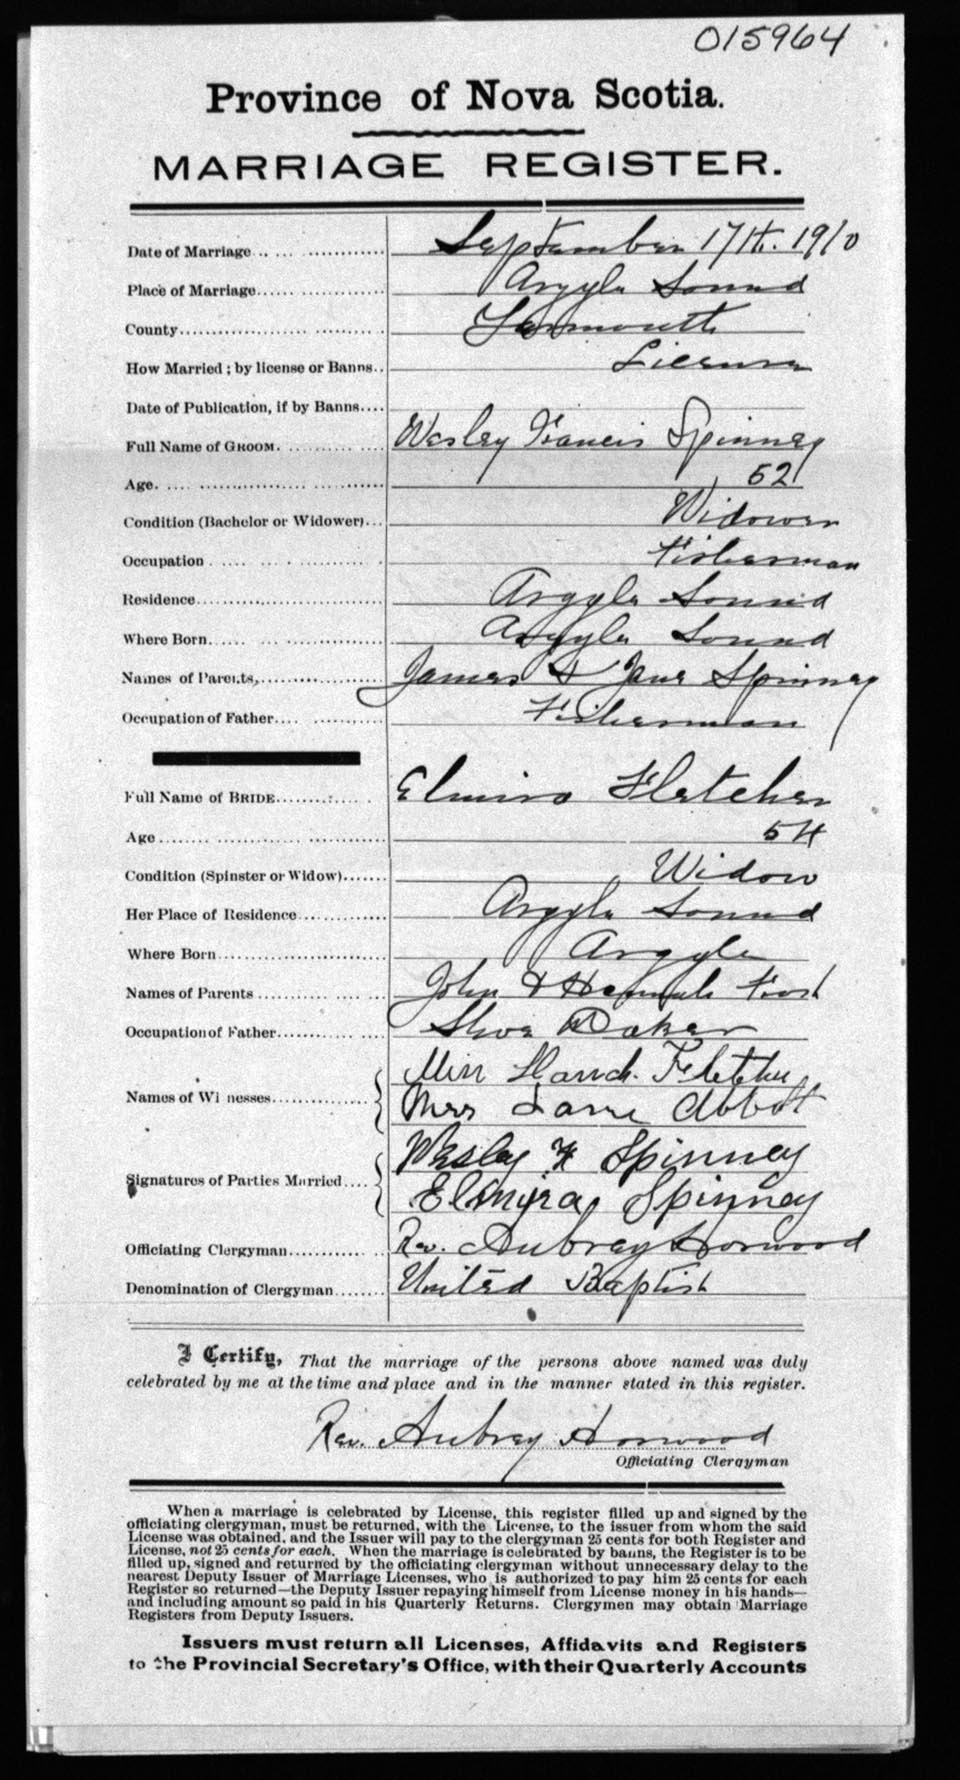 015964
Province of Nova Scotia.
MARRIAGE REGISTER.
Date of Marriage September 17th. 1910
Place of Marriage Argyle Sound
County Yarmouth
How Married; by license or Banns License
Date of Publication, if by Banns
Full Name of GROOM. Wesley Francis Spinney
Age 52
Condition (Bachelor or Widower) Widower
Occupation Fisherman
Residence Argyle Sound
Where Born Argyle Sound
Names of Parents, James & Jane Spinney
Occupation of Father Fisherman
Full Name of BRIDE Elmira Fletcher
Age 54
Condition (Spinster or Widow) Widow
Her Place of Residence Argyle Sound
Where Born Argyle
Names of Parents John & Hannah Frost
Occupation of Father Shoe Maker
Names of Witnesses Miss Fletcher
Mrs Abbott
Signatures of Parties Married Wesley F Spinney
Elmira Spinney
Officiating Clergyman Rev. Aubrey Horwood
Denomination of Clergyman United Baptist
I Certify, That the marriage of the persons above named was duly
celebrated by me at the time and place and in the manner stated in this register.
Rev. Aubrey Horwood
Officiating Clergyman
When a marriage is celebrated by License, this register filled up and signed by the
officiating clergyman, must be returned, with the License, to the issuer from whom the said
License was obtained, and the Issuer will pay to the clergyman 25 cents for both Register and
License, not 25 cents for each. When the marriage is celebrated by banns, the Register is to be
filled up, signed and returned by the officiating clergyman without unnecessary delay to the
nearest Deputy Issuer of Marriage Licenses, who is authorized to pay him 25 cents for each
Register so returned—the Deputy Issuer repaying himself from License money in his hands—
and including amount so paid in his Quarterly Returns. Clergymen may obtain Marriage
Registers from Deputy Issuers.
Issuers must return all Licenses, Affidavits and Registers
to the Provincial Secretary's Office, with their Quarterly Accounts